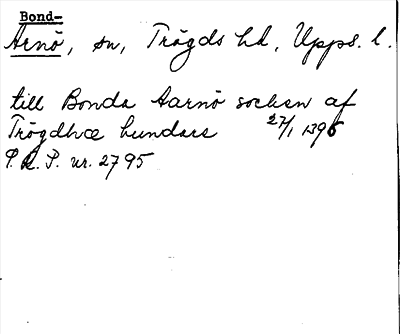 Bond-
Arnö, sn, Trögds hd, Upps. l.
till Bonda Aarnö sochen af
Trögdhæ hundare 27/1 1396
P. R. P. nr. 2795